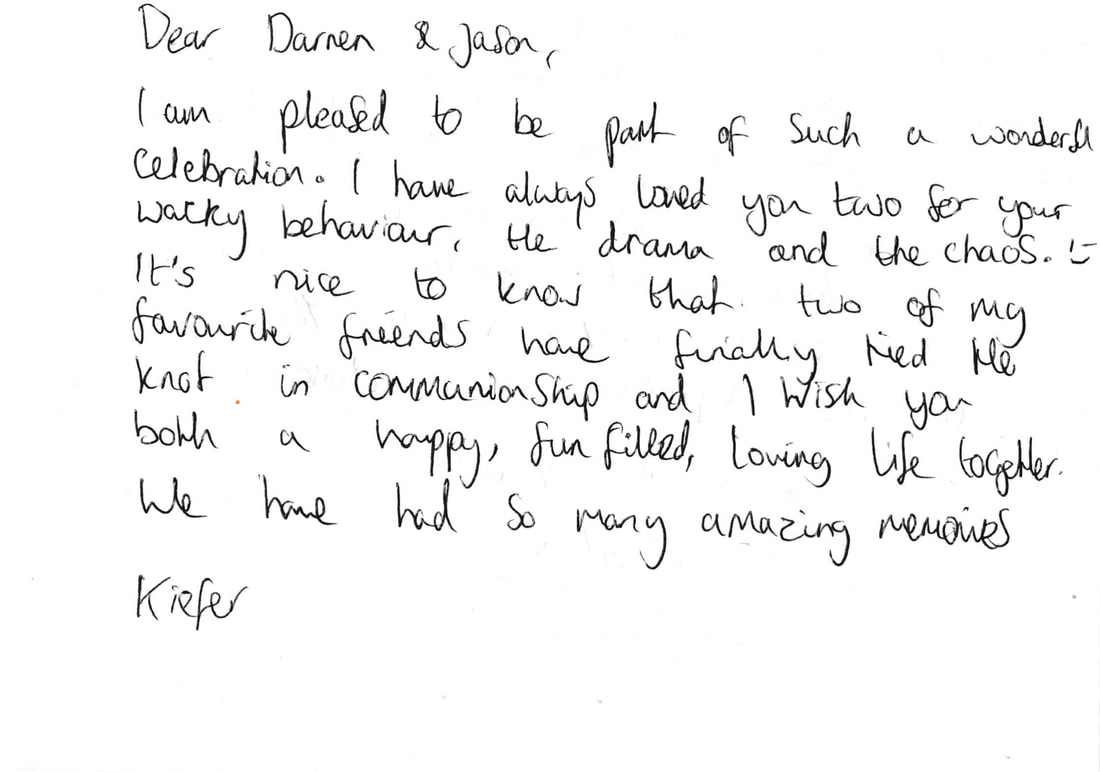 Dear Darren & Jason,
I am pleased to be part of such a wonderful
celebration. I have always loved you two for your
wacky behaviour, the drama and the chaos. :-
It's nice to know that two of my
favourite friends have finally tied the
knot in communionship and I wish you
both a happy, fun filled, loving life together.
We have had so many amazing memories
Kiefer